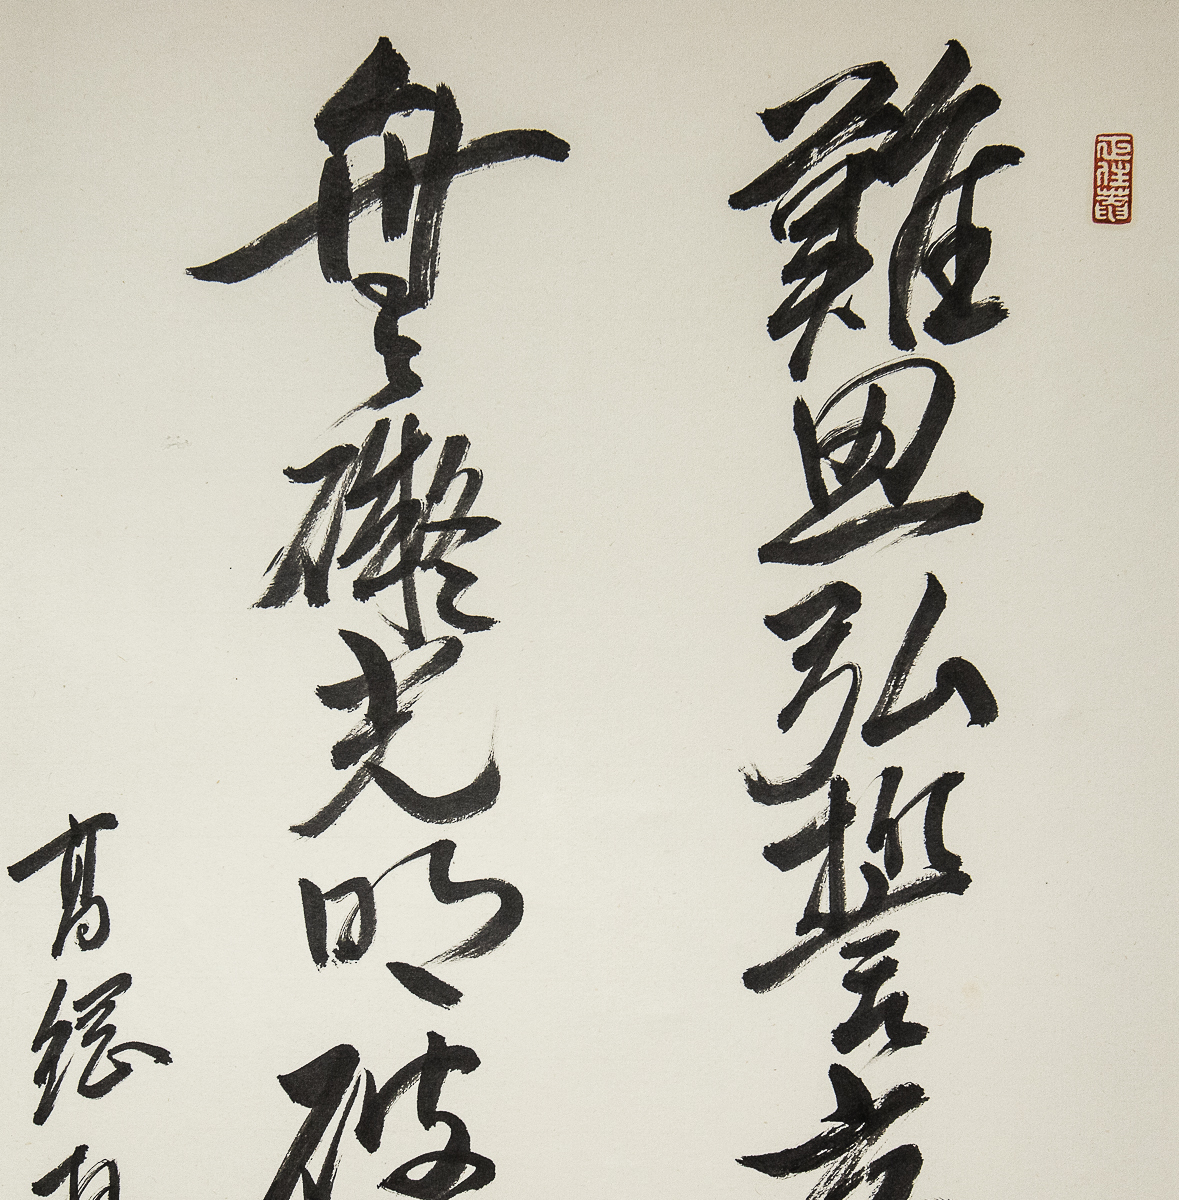 難思弘誓
無礙光明破
高